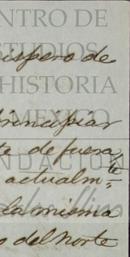 NTRO DE
STUDIOS
ispero de
HISTORIA
MEXICO
principiar
te de fuera
NDACIÓN
actualmte
la misma
o del Norte